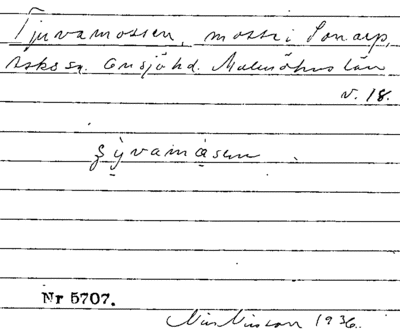 Tjuvamossen, mosse i Sonarp,
Asks sn. Onsjö hd. Malmöhus län
v. 18.
Nr 5707.
Nils Nilsson 1936.